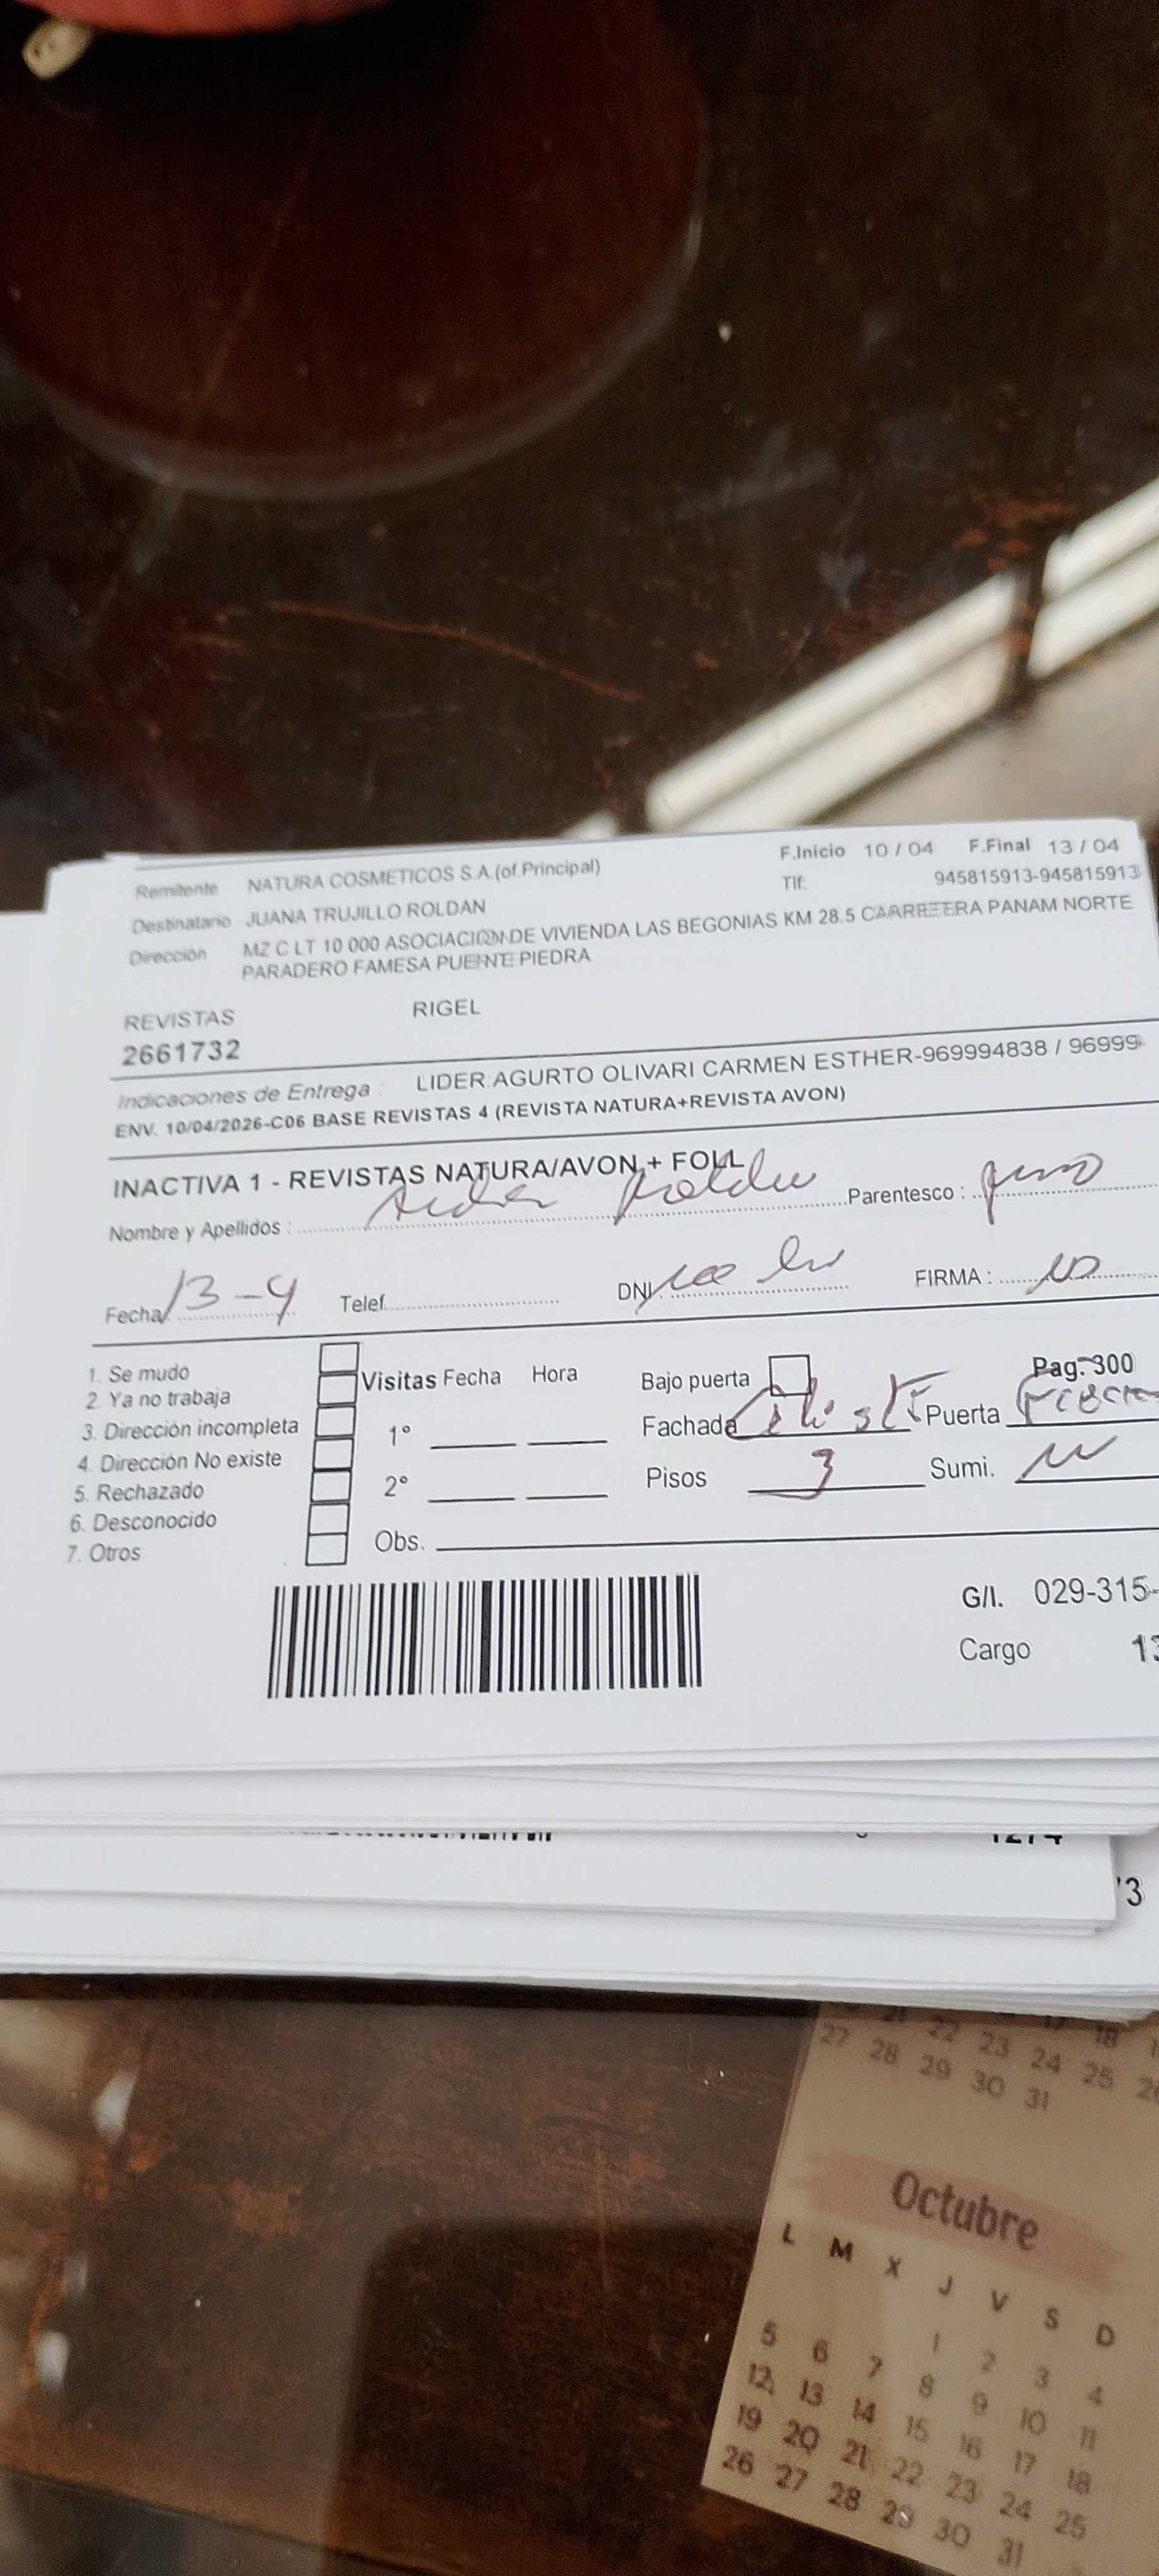 Remitente NATURA COSMETICOS S.A.(of.Principal) F.Inicio 10 / 04 F.Final 13 / 04
Destinatario JUANA TRUJILLO ROLDAN Tlf: 945815913-945815913
Dirección MZ C LT 10 000 ASOCIACION DE VIVIENDA LAS BEGONIAS KM 28.5 CARRETERA PANAM NORTE
PARADERO FAMESA PUENTE PIEDRA
REVISTAS RIGEL
2661732
Indicaciones de Entrega : LIDER.AGURTO OLIVARI CARMEN ESTHER-969994838 / 96999
ENV. 10/04/2026-C06 BASE REVISTAS 4 (REVISTA NATURA+REVISTA AVON)
INACTIVA 1 - REVISTAS NATURA/AVON + FOLL
Nombre y Apellidos : Roldan Parentesco :
Fecha 13-4 Telef. DNI FIRMA :
1. Se mudo
2. Ya no trabaja
3. Dirección incompleta
4. Dirección No existe
5. Rechazado
6. Desconocido
7. Otros
Visitas Fecha Hora
1°
2°
Obs.
Bajo puerta Pag. 300
Fachada Celeste Puerta
Pisos 3 Sumi.
G/I. 029-315-
Cargo 13
1274
73
21 22 23 24 25
27 28 29 30 31
Octubre
L M X J V S D
1 2 3 4
5 6 7 8 9 10 11
12 13 14 15 16 17 18
19 20 21 22 23 24 25
26 27 28 29 30 31